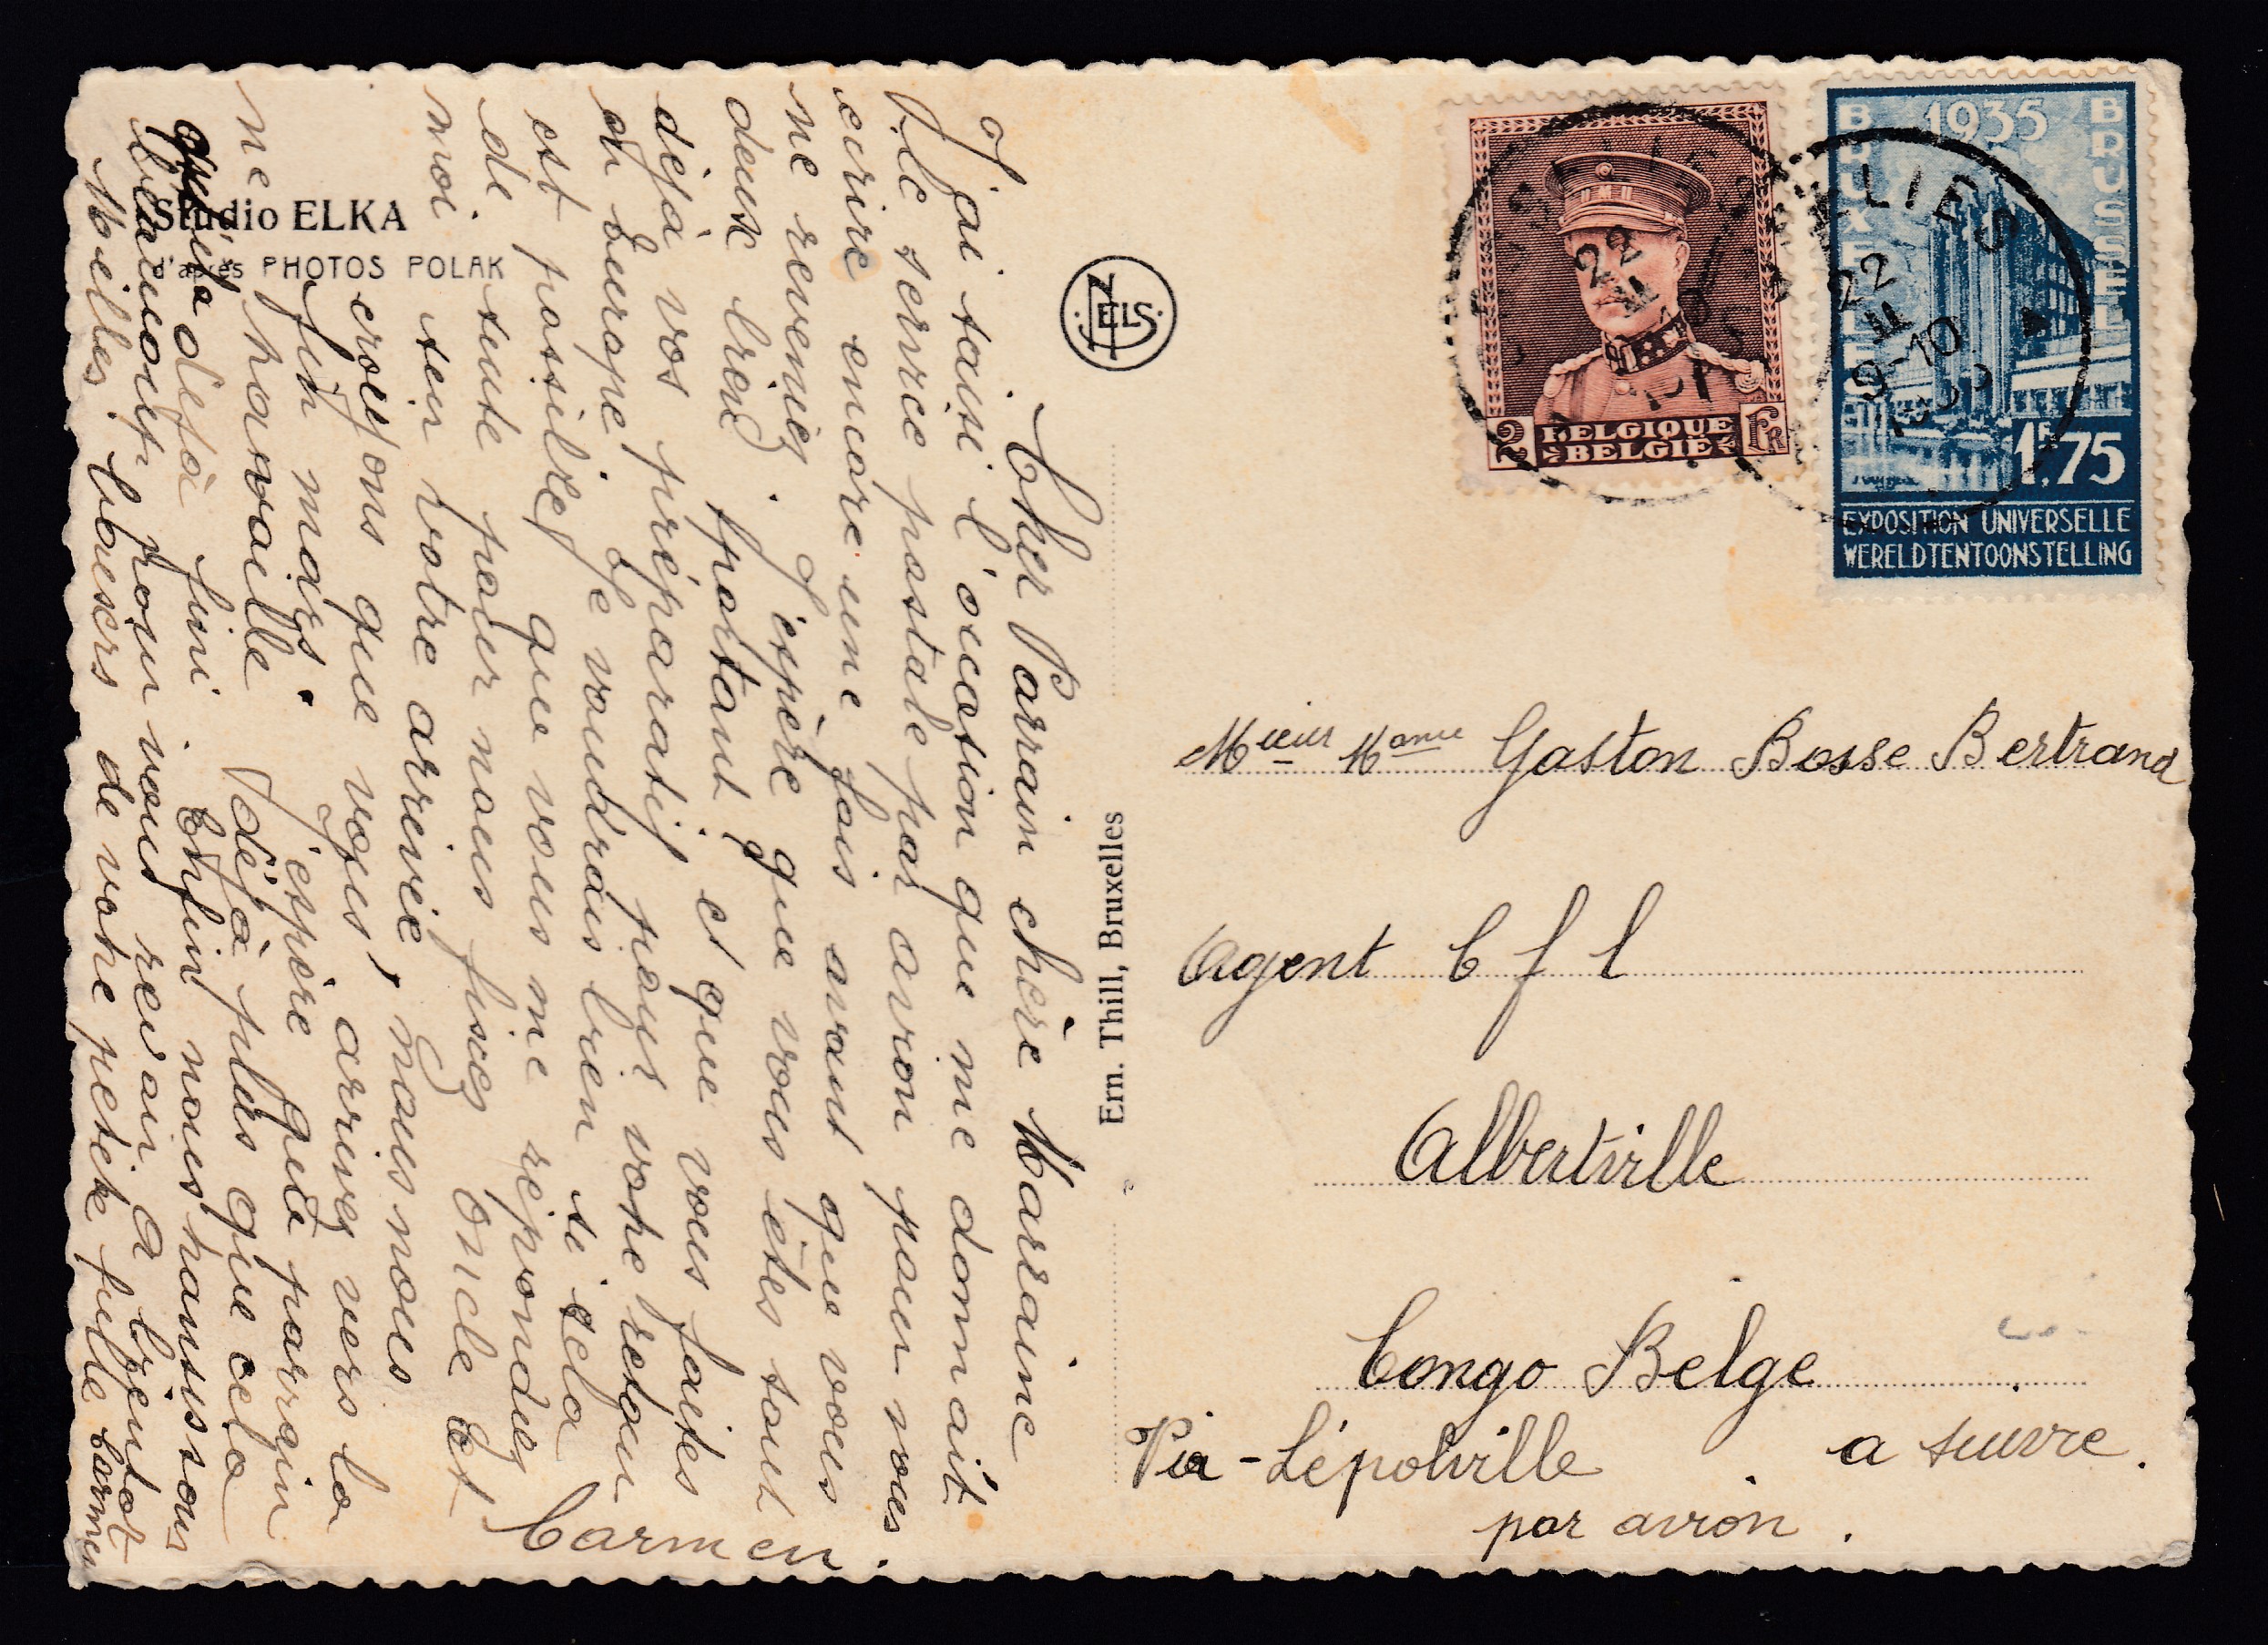 Cher Parrain chère Marraine
J'ai saisi l'occasion que me donnait
le service postale par avion pour vous
ecrire encore une fois avant que vous
ne reveniez. J'éspère que vous êtes tout
deux bien portant et que vous faites
déja vos préparatif pour votre retour
en Europe. Je voudrais bien si cela
est possible que vous me répondiez
de suite pour nous fixez
moi sur votre arrivée, nous nous
croyons que vous arrivez vers la
fin mars. J'éspère que parrain
ne travaille déjà plus que cela
déjà fini Enfin nous
beaucoup pour vous revoir a bientot
Meilles baisers de votre petite fille Carmen
Oncle et
Carmen.
Studio ELKA
d'après PHOTOS POLAK
NELS
Ern. Thill, Bruxelles
2 BELGIQUE FR
BELGIË
1935
BRUXELLES
BRUSSEL
1F.75
EXPOSITION UNIVERSELLE
WERELDTENTOONSTELLING
22
II
22
II
9-10
Msieur Mame Gaston Bosse Bertrand
Agent C f l
Albertville
Congo Belge
Via - Lépolville a suivre.
par avion.